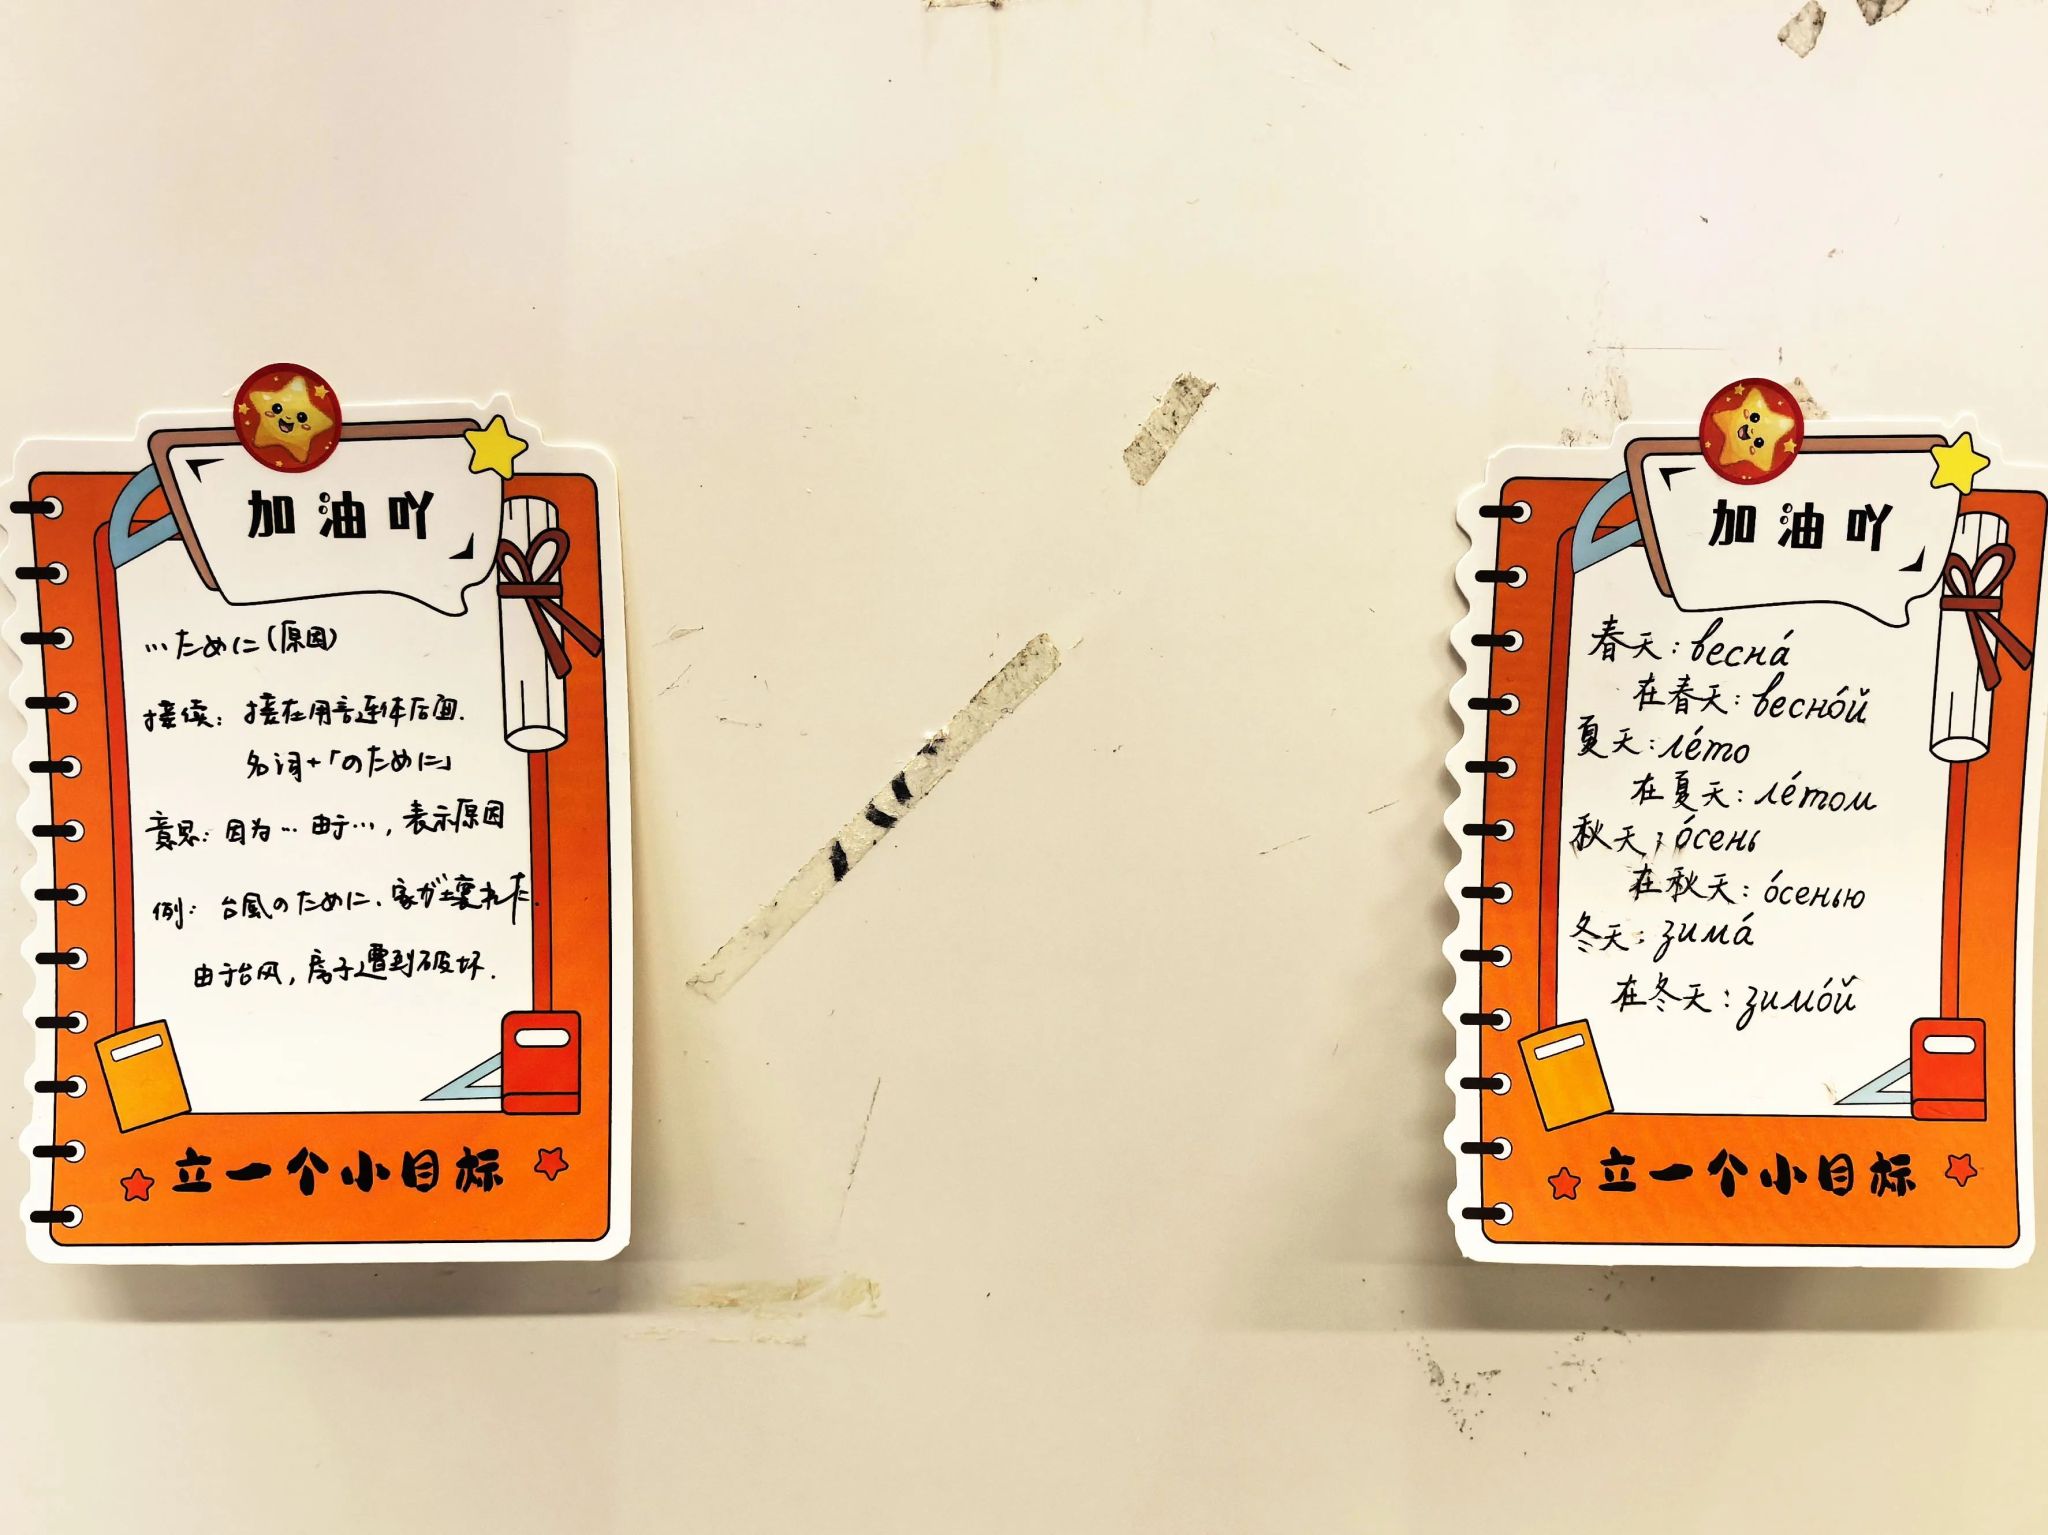 加油吖
…ために(原因)
接续:接在用言连体后面.
名词+「のために」
意思:因为…由于…,表示原因
例:台風のために、家が壊れた.
由于台风,房子遭到破坏.
立一个小目标
加油吖
春天:весна́
在春天:весно́й
夏天:ле́то
在夏天:ле́том
秋天:о́сень
在秋天:о́сенью
冬天:зима́
在冬天:зимо́й
立一个小目标